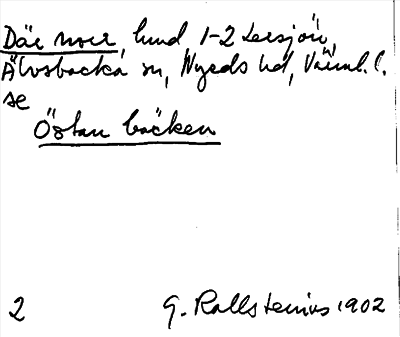 Där norr, hmd 1-2 Lersjön,
Älvsbacka sn, Nyeds hd, Värml. l.
se
Östan bäcken
2 G. Kallstenius 1902